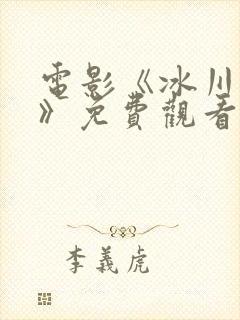 電影《冰川
》免費觀看
李義虎